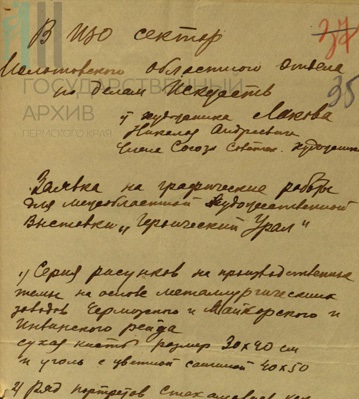 В ИЗО сектор
37
35
Молотовского областного Отдела
по делам Искусств
ГОСУДАРСТВЕННЫЙ
АРХИВ
ПЕРМСКОГО КРАЯ
художника Лякова
Николая Андреевича
Члена Союза Советск. художник
Заявка на графические работы
для межобластной художественной
Выставки "Героический Урал"
1) Серия рисунков на производственные
темы на основе металлургических
заводов Чермозского и Майкорского и
Инвинского рейда
сухая кисть размер 30х40 см
и уголь с цветной сангиной 40х50
2) Ряд портретов стахановцев